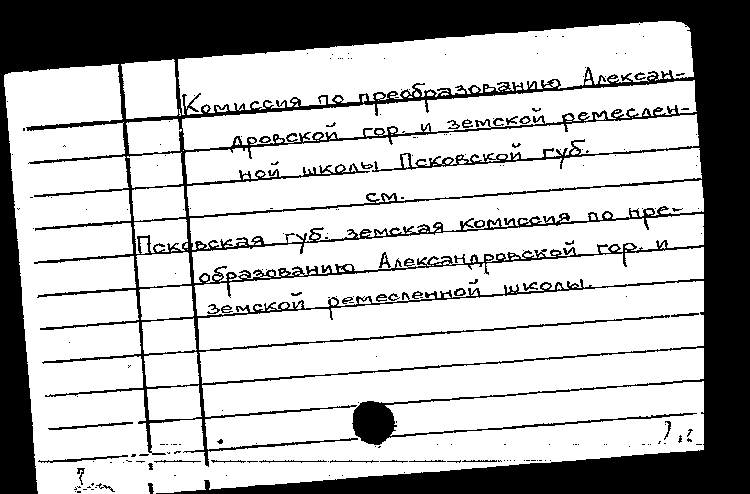 Комиссия по преобразованию Алексан-
дровской гор. и земской ремеслен-
ной школы Псковской губ.
см.
Псковская губ. земская комиссия по пре-
образованию Александровской гор. и
земской ремесленной школы.